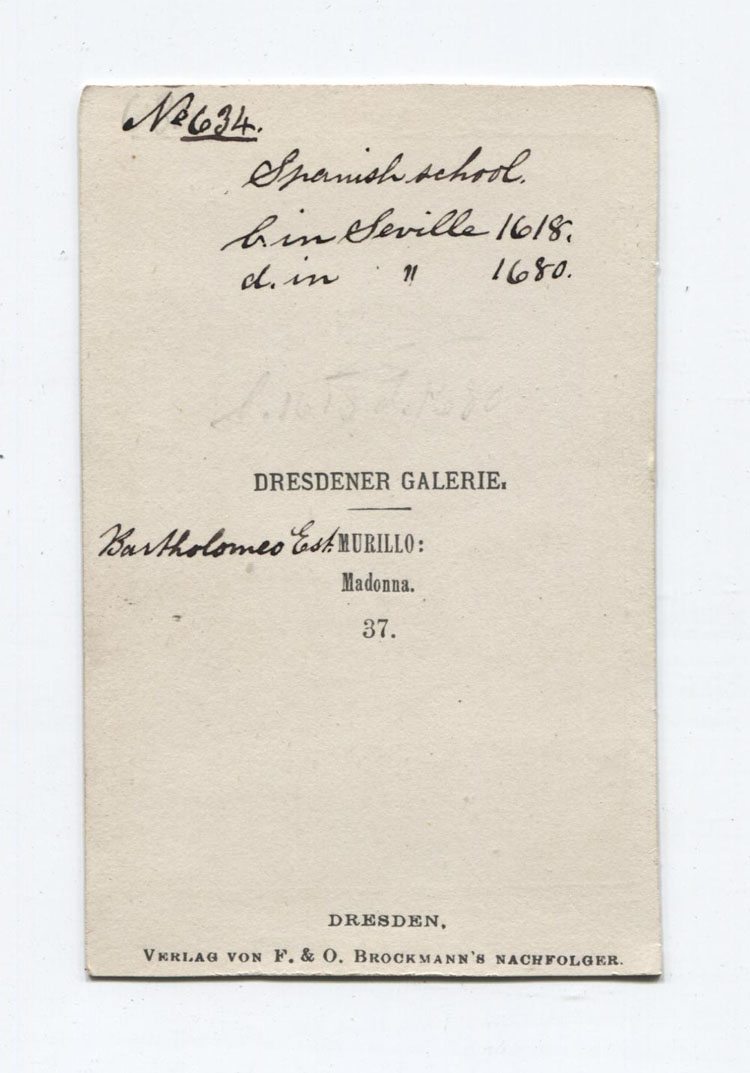 No 634.
Spanish school.
b. in Seville 1618.
d. in " 1680.
b. 1618 d. 1680
DRESDENER GALERIE.
Bartholomeo Est. MURILLO:
Madonna.
37.
DRESDEN,
VERLAG VON F. & O. BROCKMANN'S NACHFOLGER.